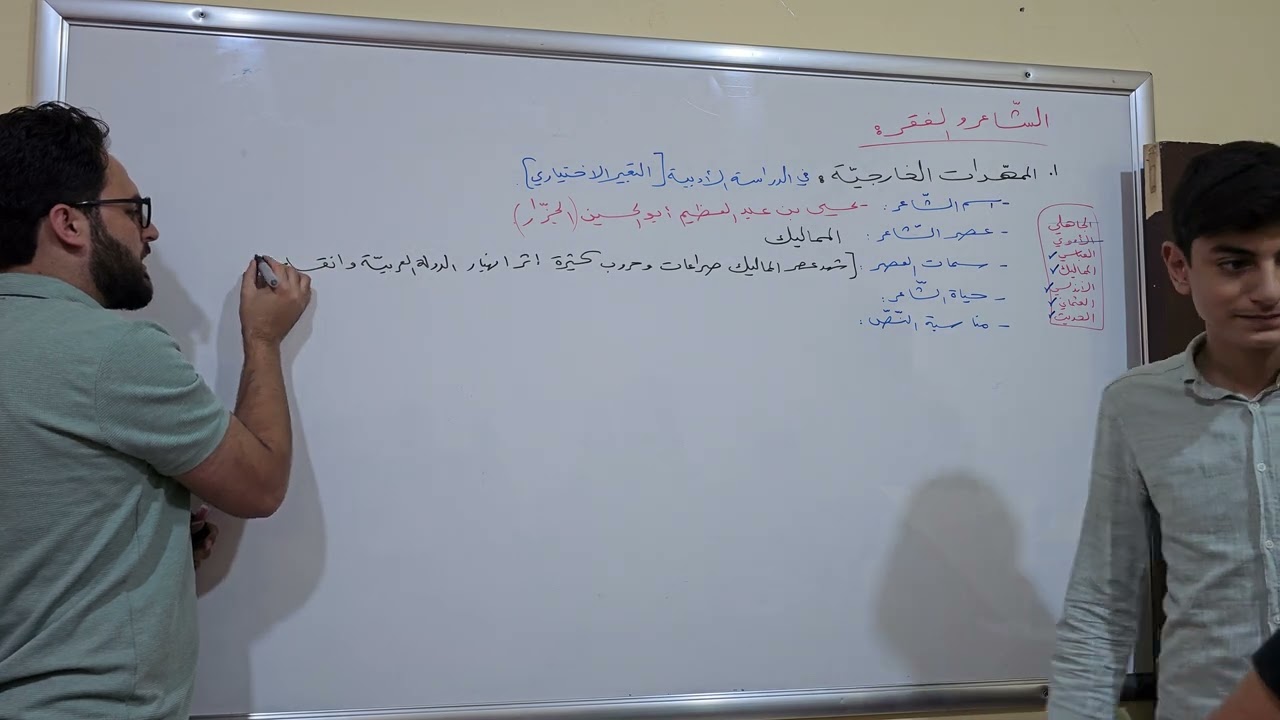 الشّاعر والفقر:
١. الممهّدات الخارجيّة: في الدراسة الأدبية [التعبير الاختياري].
- اسم الشّاعر: - يحيى بن عبد العظيم أبو الحسين (الجزّار)
- عصر الشّاعر: المماليك
- سمات العصر: [شهد عصر المماليك صراعات وحروب كثيرة اثر انهيار الدولة العربيّة وانقسا
- حياة الشّاعر:
- مناسبة النّصّ:
الجاهلي
الأموي
العباسي
المماليك
الأندلسي
العثماني
الحديث